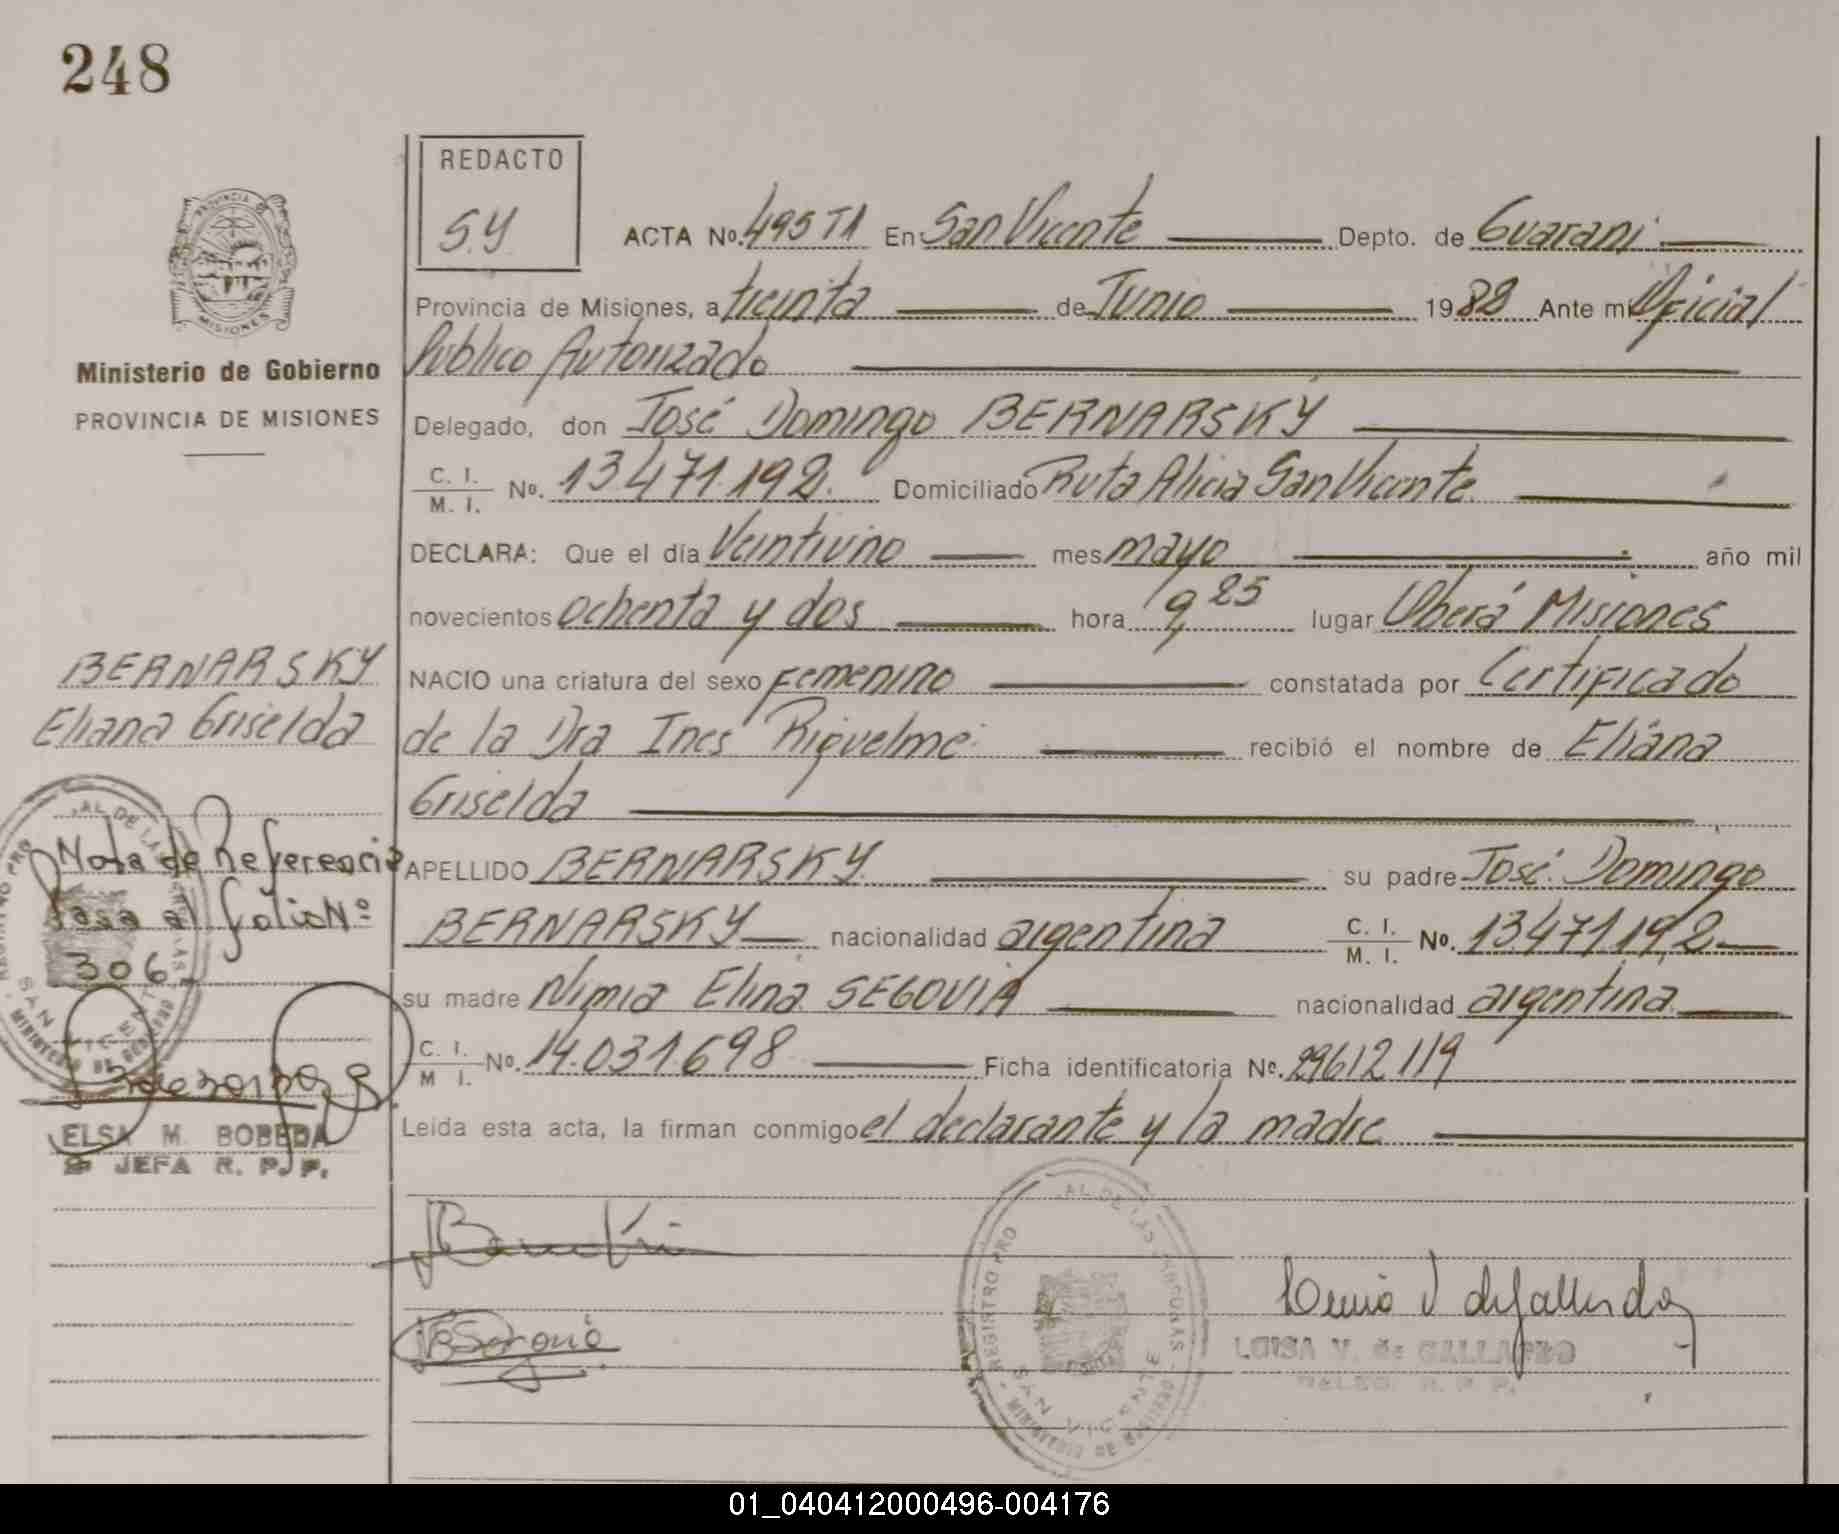 248
REDACTO
S.Y.
PROVINCIA DE
MISIONES
Ministerio de Gobierno
PROVINCIA DE MISIONES
ACTA No. 495 T1 En San Vicente Depto. de Guaraní
Provincia de Misiones, a treinta de Junio 1982 Ante mi Oficial
Público Autorizado
Delegado, don José Domingo BERNARSKY
C. I.
M. I. No. 13.471.192. Domiciliado Ruta Alicia San Vicente
DECLARA: Que el día Veintiuno mes mayo año mil
novecientos ochenta y dos hora 9,25 lugar Oberá Misiones
NACIO una criatura del sexo femenino constatada por Certificado
de la Dra Ines Riquelme recibió el nombre de Eliana
Griselda
APELLIDO BERNARSKY su padre José Domingo
BERNARSKY nacionalidad argentina C. I.
M. I. No. 13.471.192
su madre Nimia Elina SEGOVIA nacionalidad argentina
C. I.
M I. No. 14.031.698 Ficha identificatoria No. 29612119
Leida esta acta, la firman conmigo el declarante y la madre
BERNARSKY
Eliana Griselda
Nota de Referencia
Pasa al folio Nº
306
ELSA M. BOBEDA
JEFA R. P. P.
REGISTRO PRO AL DE LAS PERSONAS
SAN VICENTE
MINISTERIO DE GOBIERNO
LUISA V. de GALLARDO
DELEG. R. P. P.
01_040412000496-004176